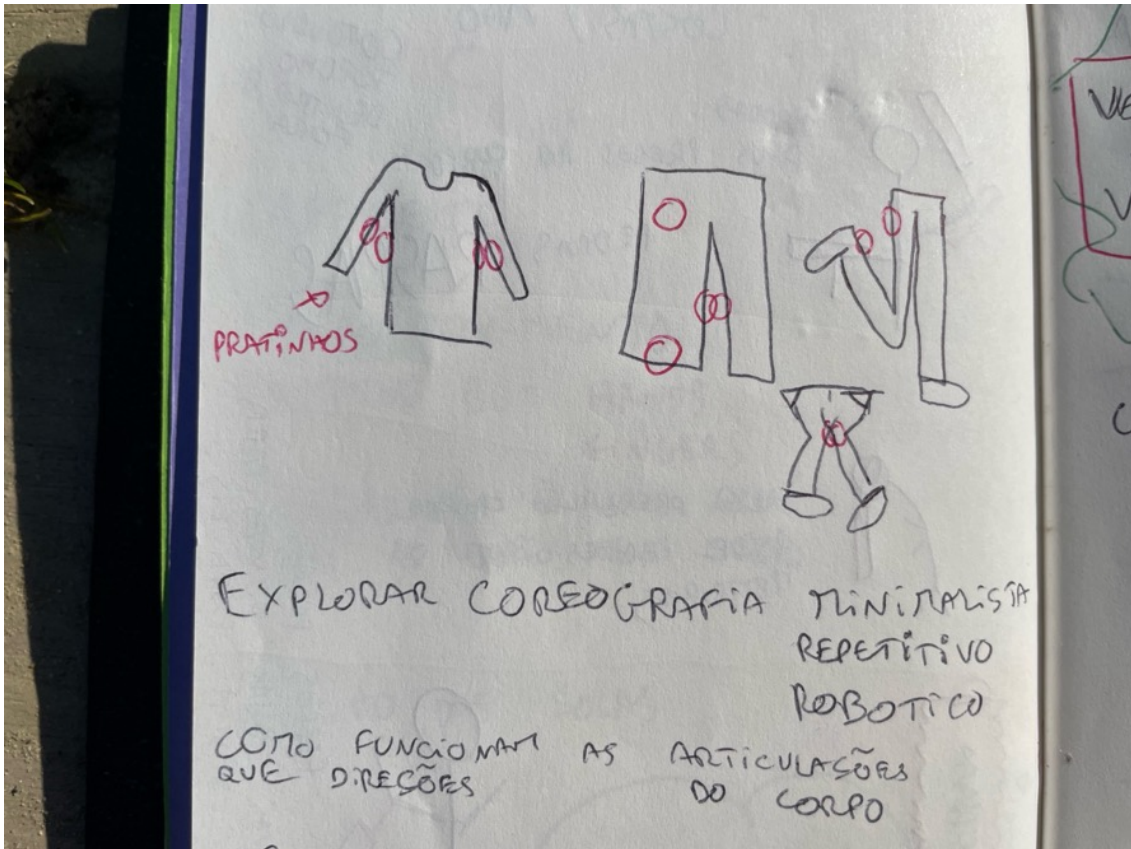 PRATINHOS
EXPLORAR COREOGRAFIA MINIMALISTA
REPETITIVO
ROBOTICO
COMO FUNCIONAM AS ARTICULAÇÕES
QUE DIREÇÕES DO CORPO